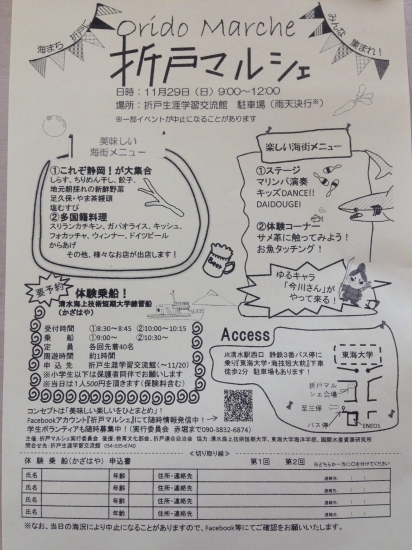 海まち 折戸に みんな 集まれ!
Orido Marche
折戸マルシェ
日時：11月29日（日）9:00～12:00
場所：折戸生涯学習交流館　駐車場（雨天決行※）
※一部イベントが中止になることがあります
美味しい
海街メニュー
①これぞ静岡！が大集合
しらす、ちりめん干し、餃子、
地元朝採れの新鮮野菜
足久保・やま茶饅頭
塩むすび
②多国籍料理
スリランカチキン、ガパオライス、キッシュ、
フォカッチャ、ウィンナー、ドイツビール
からあげ
その他、様々なお店が出店します！
楽しい海街メニュー
①ステージ
マリンバ演奏
キッズDANCE!!
DAIDOUGEI
②体験コーナー
サメ革に触ってみよう！
お魚タッチング！
ゆるキャラ
「今川さん」が
やって来る！
Beer
要予約
体験乗船！
清水海上技術短期大学練習船
（かざはや）
受付時間　①8:30～8:45　②10:00～10:15
乗　船　①9:00～　②10:30～
定　員　各回先着40名
周遊時間　約1時間
申込先　折戸生涯学習交流館（～11/20）
※小学生以下は保護者同伴でお願いします
※当日は1人500円を頂きます（保険料含む）
Access
JR清水駅西口　静鉄3番バス停に
乗り『東海大学・海技短大前』下車
徒歩2分　駐車場もあります！
東海大学
折戸マル
シェ会場
至三保
バス停
ENEOS
コンセプトは「美味しい楽しいをひとまとめ」！
Facebookアカウント『折戸マルシェ』にて随時情報発信中！
学生ボランティアも随時募集中！（実行委員会　赤堀まで090-3832-6874）
主催：折戸マルシェ実行委員会　後援：教育文化部会、折戸連合自治会　協力：清水海上技術短期大学、東海大学海洋学部、国際水産資源研究所
問合せ先：折戸生涯学習交流館　054-335-6760
≪切り取り線≫
体験乗船（かざはや）申込書　第1回　第2回　※どちらか一方に○を付けてください
氏名　年齢　住所・連絡先　連絡先：（　）
氏名　年齢　住所・連絡先　連絡先：（　）
氏名　年齢　住所・連絡先　連絡先：（　）
氏名　年齢　住所・連絡先　連絡先：（　）
※なお、当日の海況により中止になることがありますので、Facebook等にてご確認をお願いいたします。